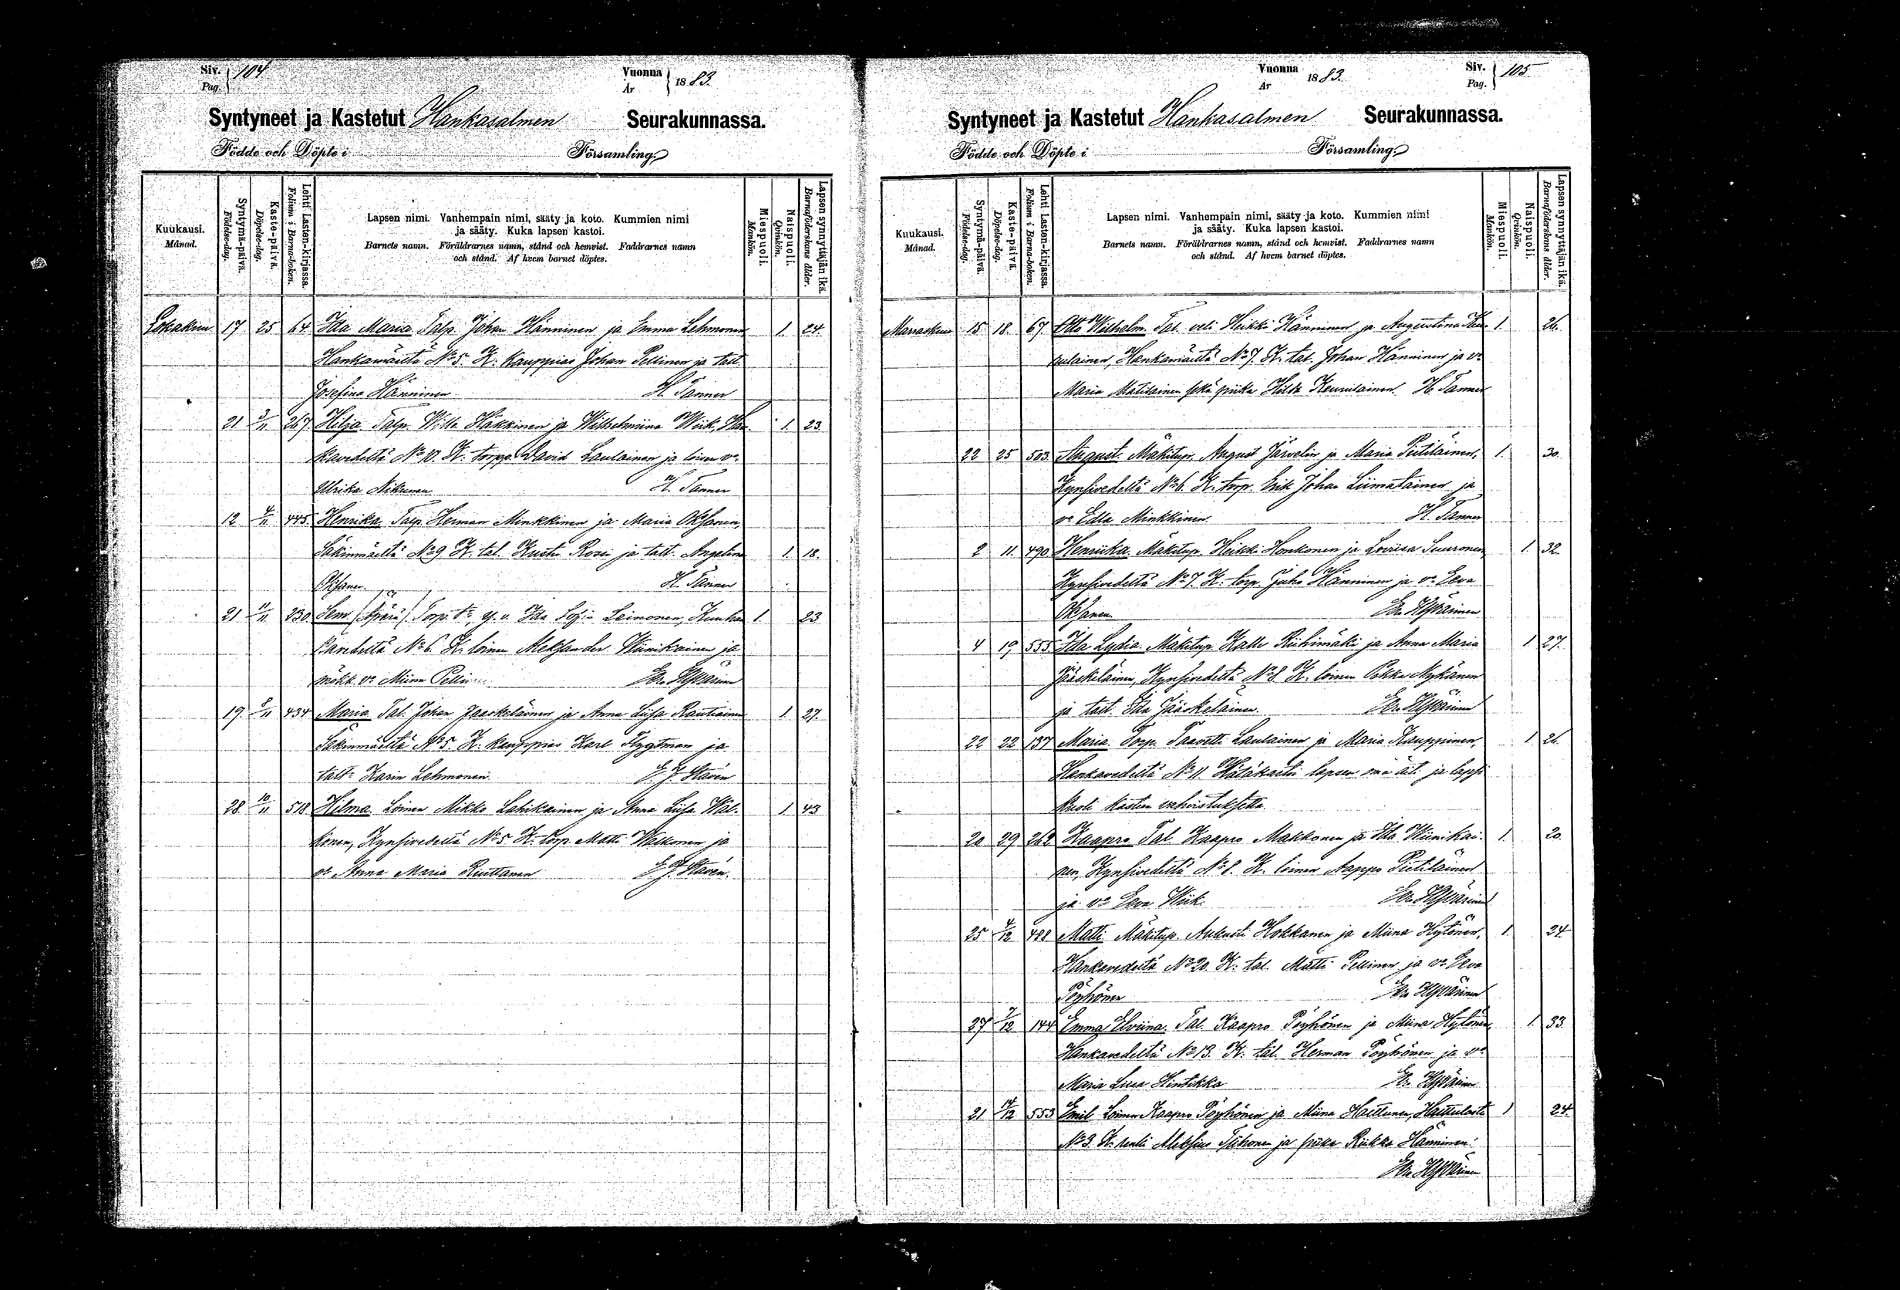 Siv. Pag. 104
Vuonna År 1883.
Syntyneet ja Kastetut Hankasalmen Seurakunnassa.
Födde och Döpte i Församling.
Kuukausi. Månad.
Syntymä-päivä. Födelse-dag.
Kaste-päivä. Döpelse-dag.
Lehti Lasten-kirjassa. Folium i Barna-boken.
Lapsen nimi. Vanhempain nimi, sääty ja koto. Kummien nimi
ja sääty. Kuka lapsen kastoi.
Barnets namn. Föräldrarnes namn, stånd och hemvist. Faddrarnes namn
och stånd. Af hvem barnet döptes.
Miespuoli. Mankön.
Naispuoli. Qvinkön.
Lapsen synnyttäjän ikä. Barnaföderskans ålder.
Lokakuu 17 25 64 Ida Maria Talp. Johan Hänninen ja Emma Lehmonen 1. 24.
Hankamäeltä No 5. K. kauppias Johan Pellinen ja talt.
Josefina Hänninen H. Tanner
21 3/11 267 Hilja. Talp. Wille Häkkinen ja Wilhelmiina Wiik, Han- 1. 23
kavedeltä No 10. K. torpp. David Laulainen ja loisen vo
Ulrika Nikunen H. Tanner
12 4/11 445. Henrika. Talp. Herman Minkkinen ja Maria Oksanen,
Säkinmäeltä No 9 K. tal. Kusta Rossi ja talt. 1. 18.
Oksanen H. Tanner
21 11/11 230 (Äpärä). Torp. tr, Ida Sofia Leimonen, 1 23
No 6. K. loinen Aleksander Wiinikainen ja
mökk. vo Miina Er. Hyvärinen
19. 434 Maria. Tal. Johan Jääskeläinen ja Anna Liisa Rautiainen 1 27.
Säkinmäeltä No 5. K. kauppias Karl Flygtman ja
talt. Karin Lehmonen E. J. Stavén
28. 10/11 518. Hilma. Loinen Mikko Lahikainen ja Anna Liisa Wäl- 1 43
konen, Kynsivedeltä No 5 K. torp. Matti Walkonen ja
vo Anna Maria Ruuttanen E. J. Stavén.
Vuonna År 1883.
Siv. Pag. 105
Syntyneet ja Kastetut Hankasalmen Seurakunnassa.
Födde och Döpte i Församling.
Kuukausi. Månad.
Syntymä-päivä. Födelse-dag.
Kaste-päivä. Döpelse-dag.
Lehti Lasten-kirjassa. Folium i Barna-boken.
Lapsen nimi. Vanhempain nimi, sääty ja koto. Kummien nimi
ja sääty. Kuka lapsen kastoi.
Barnets namn. Föräldrarnes namn, stånd och hemvist. Faddrarnes namn
och stånd. Af hvem barnet döptes.
Miespuoli. Mankön.
Naispuoli. Qvinkön.
Lapsen synnyttäjän ikä. Barnaföderskans ålder.
Marraskuu 15 18. 67. Otto Wilhelm. Tal. veli Heikki Hänninen ja Augustina 1. 26.
Hankamäeltä No 7. K. tal. Johan Hänninen ja vo
Maria Matilainen sekä piika Hilda H. Tanner
22 25 503. August. Mäkitup. August Järvelin ja Maria Pietiläinen, 1. 30.
Kynsivedeltä No 6. K. torp. Erik Johan Liimatainen ja
vo Edla Minkkinen. H. Tanner
2 11. 490. Henriika. Mäkitup. Heikki Honkonen ja Lovisa Suuronen, 1. 32.
Kynsivedeltä No 7. K. torp. Juho Hänninen ja vo Eeva
Oksanen. Er. Hyvärinen
4 19, 555. Ida Lydia. Mäkitup. Kalle Riihimäki ja Anna Maria 1 27.
Jääskeläinen, Kynsivedeltä No 8. K. loinen Pekka Nykänen
ja talt. Jääskeläinen. Er. Hyvärinen
22 22 137 Maria. Torp. Taavetti Laulainen ja Maria Kauppinen, 1 26.
Hankavedeltä No 11. Hätäkastii lapsen oma äiti ja lappi
kasteen vahvistuksetta.
20 29 Kaapro. Tal. Kaapro Makkonen ja Ida Wiinikai- 1. 20.
nen, Kynsivedeltä No 8. K. loinen Aappo Pietiläinen
ja vo Eeva Wiik. Er. Hyvärinen
25 4/12 488 Matti. Mäkitup. Aukusti Hokkanen ja Miina Hytönen, 1 24.
Hankavedeltä No 20. K. tal. Matti Pellinen ja vo Eeva
Pöyhönen Er. Hyvärinen
27 7/12 144 Emma Elviina. Tal. Kaapro Pöyhönen ja Miina Hytönen, 1. 33.
Hankavedeltä No 13. K. tal. Herman Pöyhönen ja vo
Maria Liisa Hintikka Er. Hyvärinen
21 14/12 553 Emil. Loinen Kaapro Pöyhönen ja Miina Hartunen, 1 24.
No 3. K. renki Aleksius Tihonen ja piika Riikka Hänninen.
Er. Hyvärinen